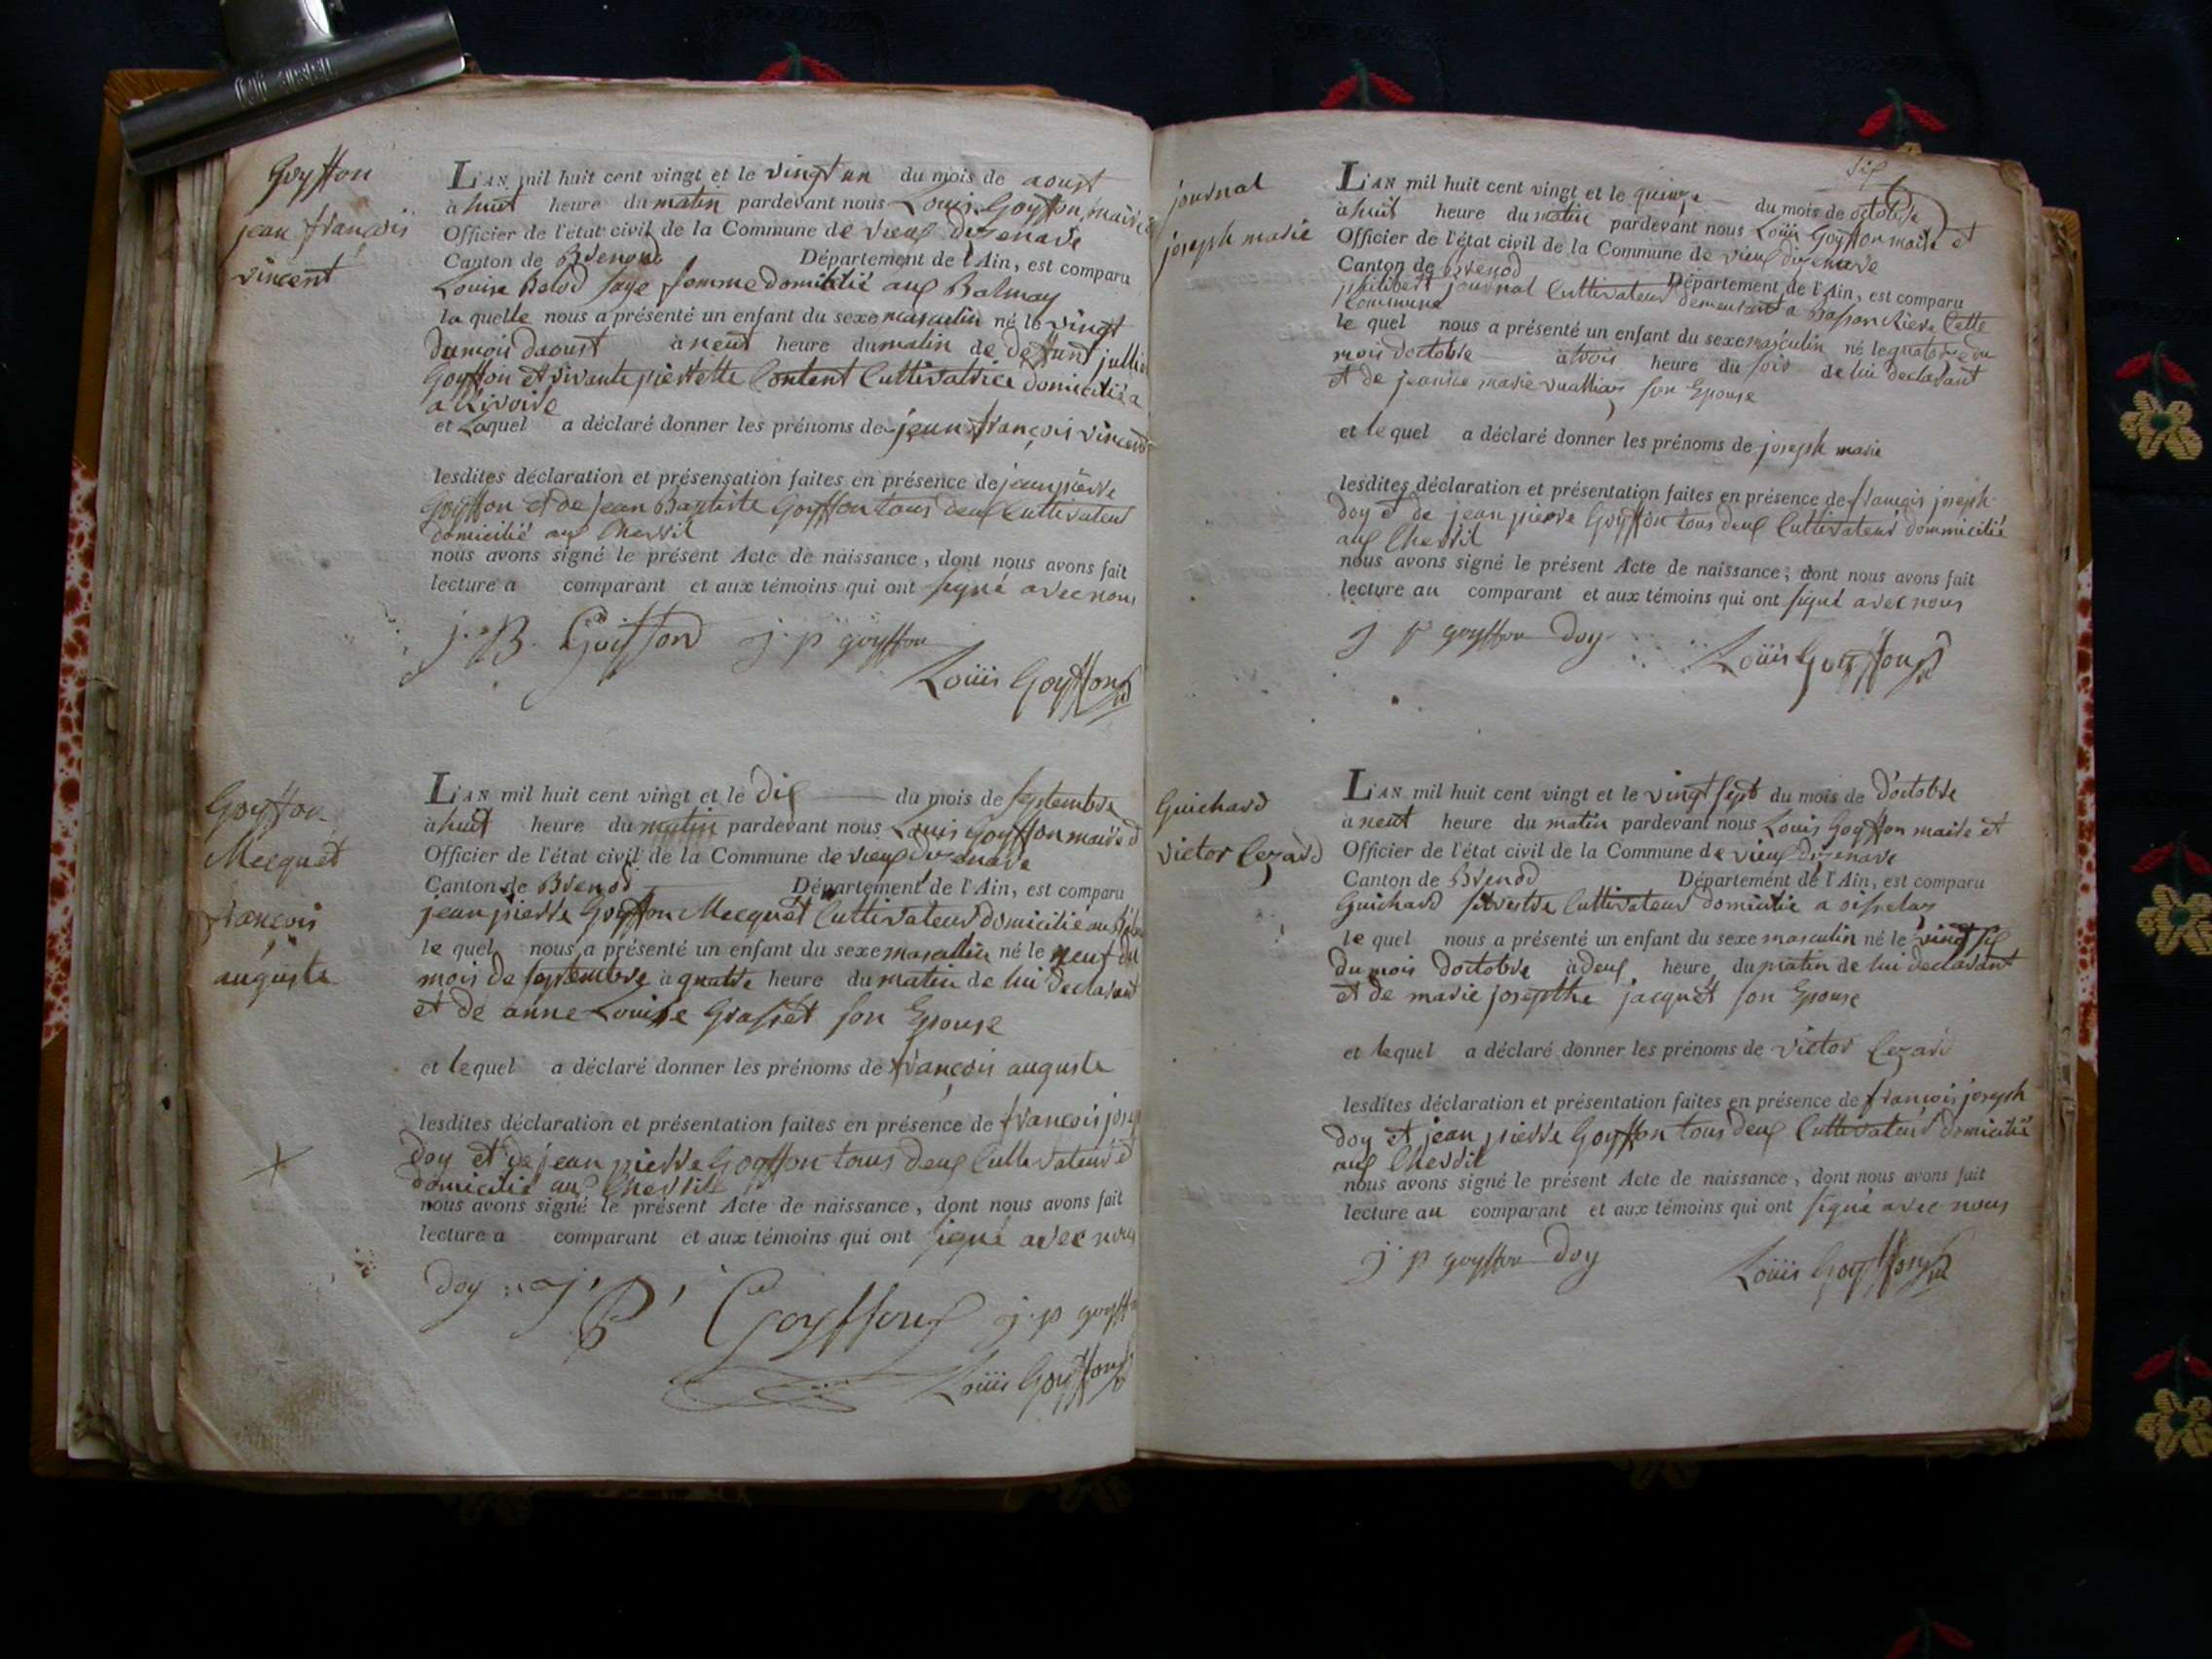 Goyffon
jean françois
vincent
L'AN mil huit cent vingt et le vingt un du mois de aoust
à huit heure du matin pardevant nous Louis Goyffon maire
Officier de l'état civil de la Commune de vieux dizenave
Canton de Brenod Département de l'Ain, est comparu
Louise Balod sage femme domicilié aux Balmay
la quelle nous a présenté un enfant du sexe masculin né le vingt
du mois daoust à neuf heure du matin de deffunt jullien
Goyffon et vivante pierrette Content Cultivatrice domicilié a
et Laquel a déclaré donner les prénoms de jean françois vincent
lesdites déclaration et présensation faites en présence de jean pierre
Goyffon et de jean Baptiste Goyffon tous deux Cultivateur
domicilié aux Chevril
nous avons signé le présent Acte de naissance, dont nous avons fait
lecture a comparant et aux témoins qui ont signé avec nous
j. B. Goiffon j. p goyffon
Louis Goyffon
Goyffon
Mecquet
françois
auguste
L'AN mil huit cent vingt et le dix du mois de septembre
à huit heure du matin pardevant nous Louis Goyffon maire et
Officier de l'état civil de la Commune de vieux dizenave
Canton de Brenod Département de l'Ain, est comparu
jean pierre Goyffon Mecquet Cultivateur domicilié au
le quel nous a présenté un enfant du sexe masculin né le neuf du
mois de septembre à quatre heure du matin de lui declarant
et de anne Louise Grasset son Epouse
et lequel a déclaré donner les prénoms de françois auguste
lesdites déclaration et présentation faites en présence de francois jose
doy et de jean pierre Goyffon tous deux Cultivateur et
domicilié aux Chevril
nous avons signé le présent Acte de naissance, dont nous avons fait
lecture a comparant et aux témoins qui ont signé avec nous
doy j' P' Goyffon j. p goyff
Louis Goyffon
six
journal
joseph marie
L'AN mil huit cent vingt et le quinze du mois de octobre
à huit heure du matin pardevant nous Louis Goyffon maire et
Officier de l'état civil de la Commune de vieux dizenave
Canton de Brenod Département de l'Ain, est comparu
philibert journal Cultivateur demeurant a Cette
Commune
le quel nous a présenté un enfant du sexe masculin né le quatorze du
mois doctobre à trois heure du soir de lui declarant
et de jeanne marie vuallian son Epouse
et le quel a déclaré donner les prénoms de joseph marie
lesdites déclaration et présentation faites en présence de françois joseph
doy et de jean pierre Goyffon tous deux Cultivateur dommicilié
aux Chevril
nous avons signé le présent Acte de naissance, dont nous avons fait
lecture au comparant et aux témoins qui ont signé avec nous
j p goyffon doy Louis Goyffon
Guichard
victor Cezard
L'AN mil huit cent vingt et le vingt sept du mois de d'octobre
à neuf heure du matin pardevant nous Louis Goyffon maire et
Officier de l'état civil de la Commune de vieux dizenave
Canton de Brenod Département de l'Ain, est comparu
Guichard silvestre Cultivateur domicilié a oisselaz
le quel nous a présenté un enfant du sexe masculin né le vingt six
du mois doctobre à deux heure du matin de lui declarant
et de marie josepthe jacquet son Epouse
et lequel a déclaré donner les prénoms de victor Cezard
lesdites déclaration et présentation faites en présence de françois joseph
doy et jean pierre Goyffon tous deux Cultivateur domicilié
aux Chevril
nous avons signé le présent Acte de naissance, dont nous avons fait
lecture au comparant et aux témoins qui ont signé avec nous
j p goyffon doy Louis Goyffon